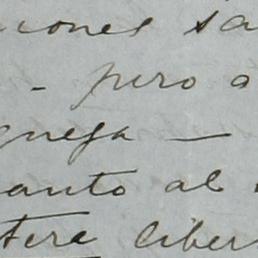 ciones sa
- pero a
quesa —
anto al
tere liber